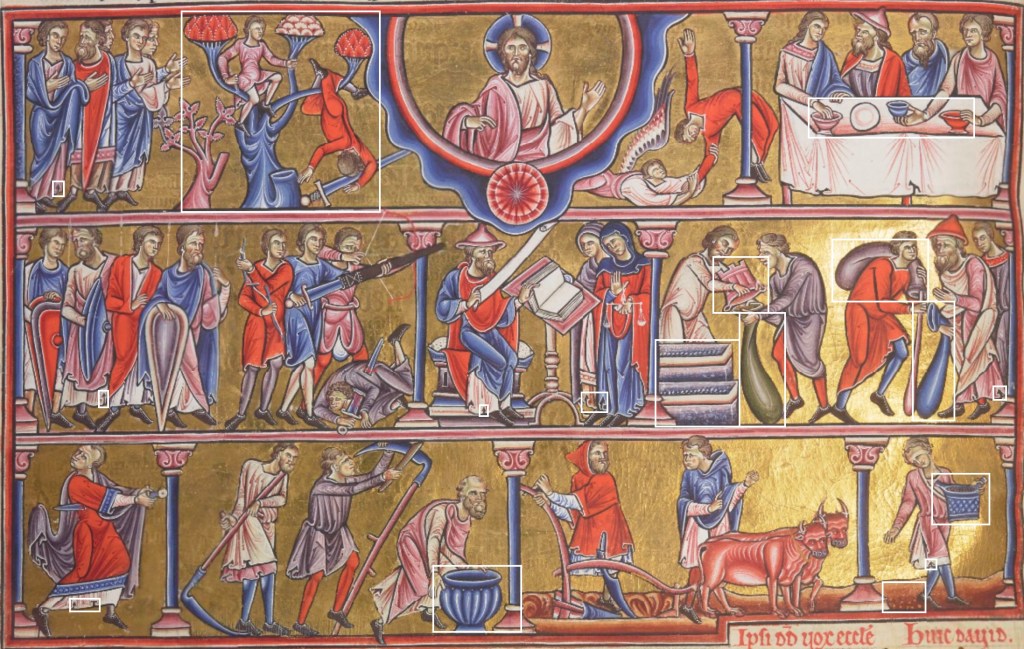 Ipsi dd̄ uox eccłe Hinc dauid.